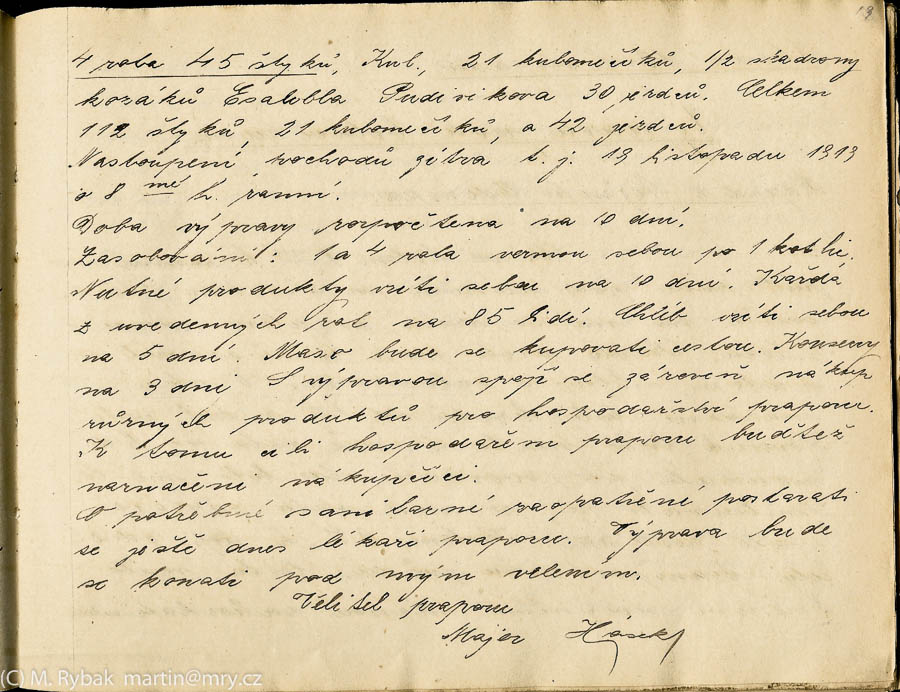 19
4 rota 45 štyků, Kul., 21 kulometčíků, 1/2 skadrony
kozáků Esaulla 30 jezdců. Celkem
112 štyků, 21 kulometčíků a 42 jezdců.
Nastoupení pochodů zítrá t. j. 19 listopadu 1919
o 8 mé h. ranní.
Doba výpravy rozpočtena na 10 dní.
Zasobování: 1 a 4 rota vezmou sebou po 1 kotli.
Nutné produkty vzíti sebou na 10 dní. Každá
z uvedenných rot na 85 lidí. Chléb vzíti sebou
na 5 dní. Maso bude se kupovati cestou. Konservy
na 3 dni S výpravou spojí se zároveň nákup
různých produktů pro hospodařství praporu.
K tomu cíli hospodařem praporu buďtež
naznačeni nákupčíci.
O potřebné sanitarné zaopatřéné postarati
se ještě dnes lékaři praporu. Výprava bude
se konati pod mým velením.
Velitel praporu
Major Hásek
(C) M. Rybak martin@mry.cz